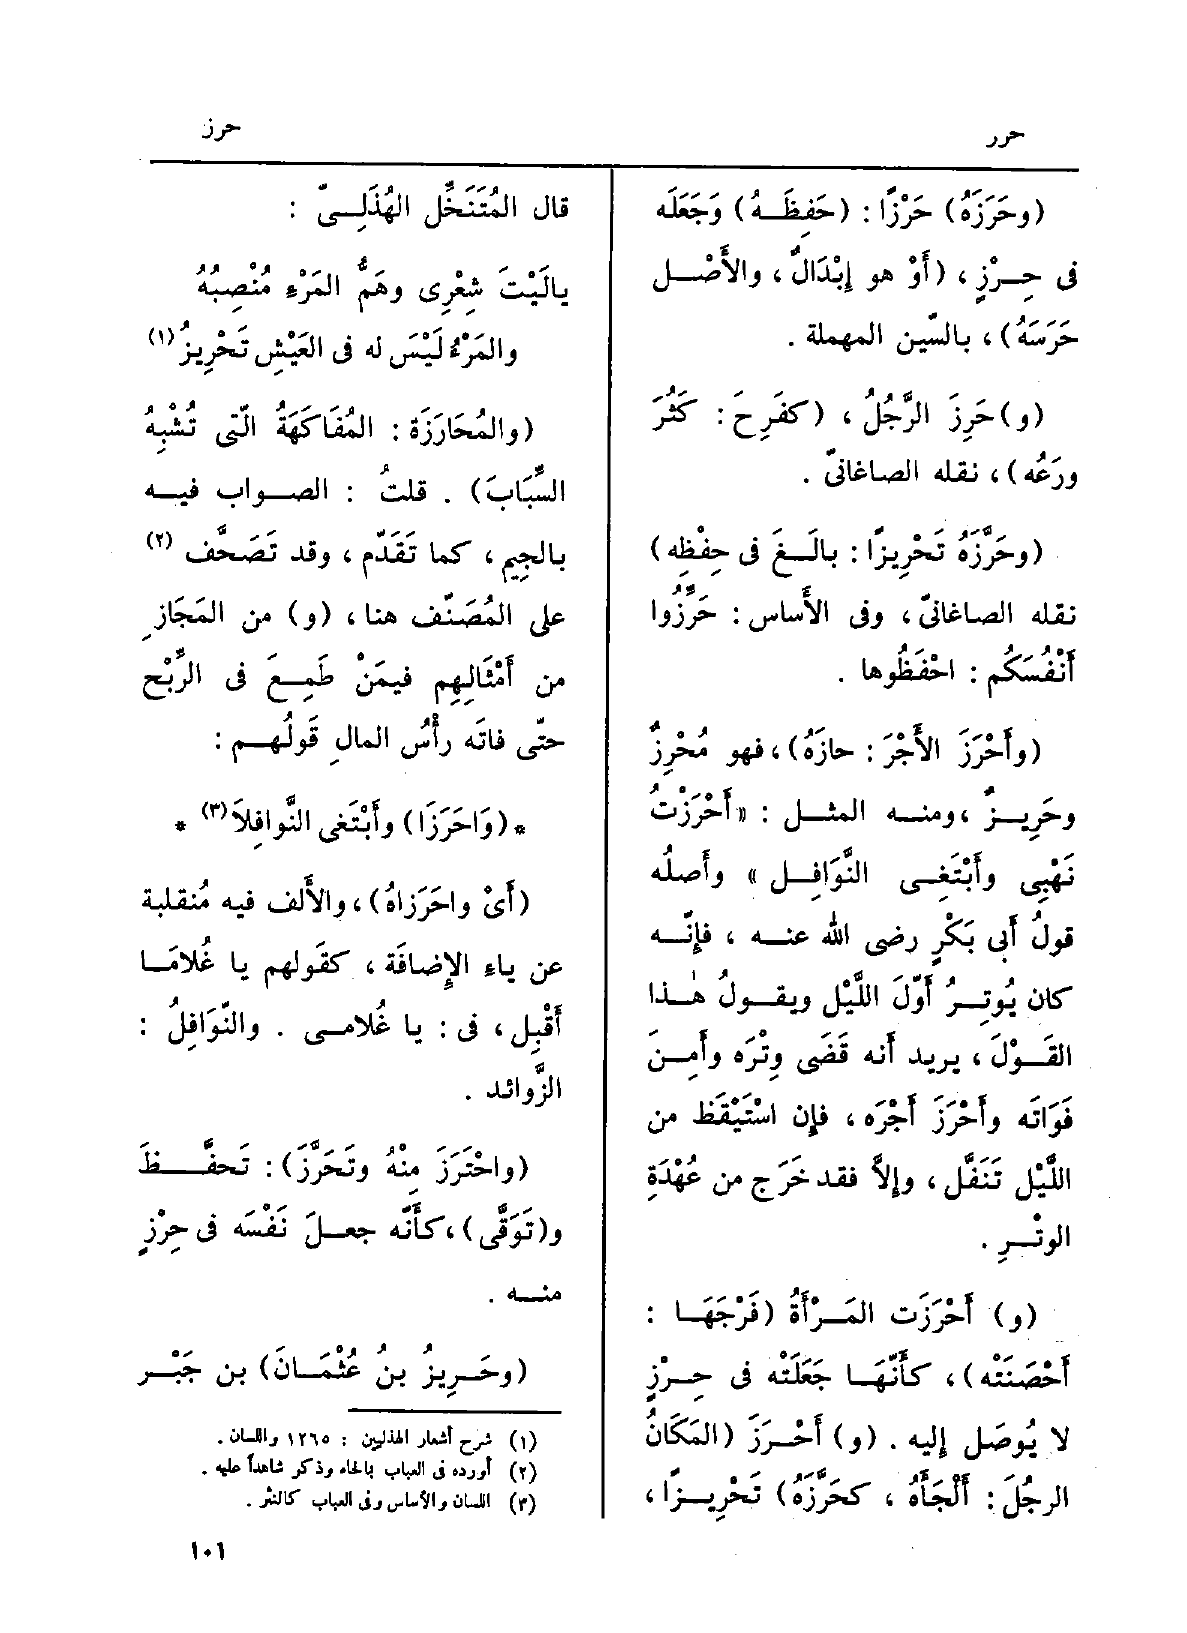 حرر
حرز
(وحَرَزَهُ) حَرْزًا : (حَفِظَـهُ) وَجَعَلَه
فى حِـرْزٍ ، (أَوْ هو إِبْدَالٌ ، والأَصْـل
حَرَسَهُ) ، بالسّين المهملة .
(و) حَرِزَ الرَّجُلُ ، (كفَرِحَ : كَثُرَ
ورَعُه) ، نقله الصاغانىّ .
(وحَرَّزَهُ تَحْرِيزًا : بالَـغَ فى حِفْظِه)
نقله الصاغانىّ ، وفى الأَساس : حَرِّزُوا
أَنْفُسَكُم : احْفَظُوها .
(وأَحْرَزَ الأَجْرَ : حازَهُ) ، فهو مُحْرِزٌ
وحَرِيـزٌ ، ومنـه المثـل : «أَحْرَزْتُ
نَهْبِى وأَبْتَغِـى النَّوَافِـل » وأَصلُه
قولُ أَبى بَكْرٍ رضى الله عنـه ، فإِنَّـه
كان يُوتِـرُ أَوّلَ اللَّيْل ويقـولُ هٰـذا
القَـوْلَ ، يريد أَنه قَضَى وِتْرَه وأَمِـنَ
فَوَاتَه وأَحْرَزَ أَجْرَه ، فإِن اسْتَيْقَظ من
اللَّيْل تَنَفَّل ، وإِلاَّ فقد خَرَج من عُهْدَةِ
الوتْـرِ .
(و) أَحْرَزَت المَـرْأَةُ (فَرْجَهَـا :
أَحْصَنَتْه) ، كأَنّهَـا جَعَلَتْه فى حِـرْزٍ
لا يُوصَل إِليه . (و) أَحْـرَزَ (المَكَانُ
الرجُلَ : أَلْجَأَهُ ، كحَرَّزَهُ) تَحْرِيـزًا ،
قال المُتَنَخِّل الهُذَلِـىّ :
يالَيْتَ شِعْرِى وهَمُّ المَرْءِ مُنْصِبُهُ
والمَرْءُ لَيْسَ له فى العَيْشِ تَحْرِيزُ (١)
(والمُحَارَزَة : المُفَاكَهَةُ الّتى تُشْبِهُ
السِّبَابَ) . قلتُ : الصـواب فيـه
بالجِيم ، كما تَقَدّم ، وقد تَصَحَّف (٢)
على المُصَنّف هنا ، (و) من المَجَازِ
من أَمْثَالِهِم فيمَنْ طَمِـعَ فى الرِّبْح
حتّى فاتَه رأْسُ المالِ قَولُهـم :
* (وَاحَرَزَا) وأَبْتَغى النَّوافِلاَ (٣) *
(أَىْ واحَرَزاهُ) ، والأَلف فيه مُنقلبة
عن ياءِ الإِضافَة ، كقَولهم يا غُلامَـا
أَقْبِل ، فى : يا غُلامـى . والنّوَافِلُ :
الزَّوائد .
(واحْتَرَزَ مِنْهُ وتَحَرَّزَ) : تَحفَّـظَ
و(تَوَقَّى) ، كأَنَّه جعـلَ نَفْسَه فى حِرْزٍ
منـه .
(وحَـرِيزُ بنُ عُثْمَـانَ) بن جَبْـر
(١) شرح أشعار الهذليين : ١٢٦٥ واللسان .
(٢) أورده فى العباب بالحاء وذكر شاهداً عليه .
(٣) اللسان والأساس وفى العباب كالنثر .
١٠١